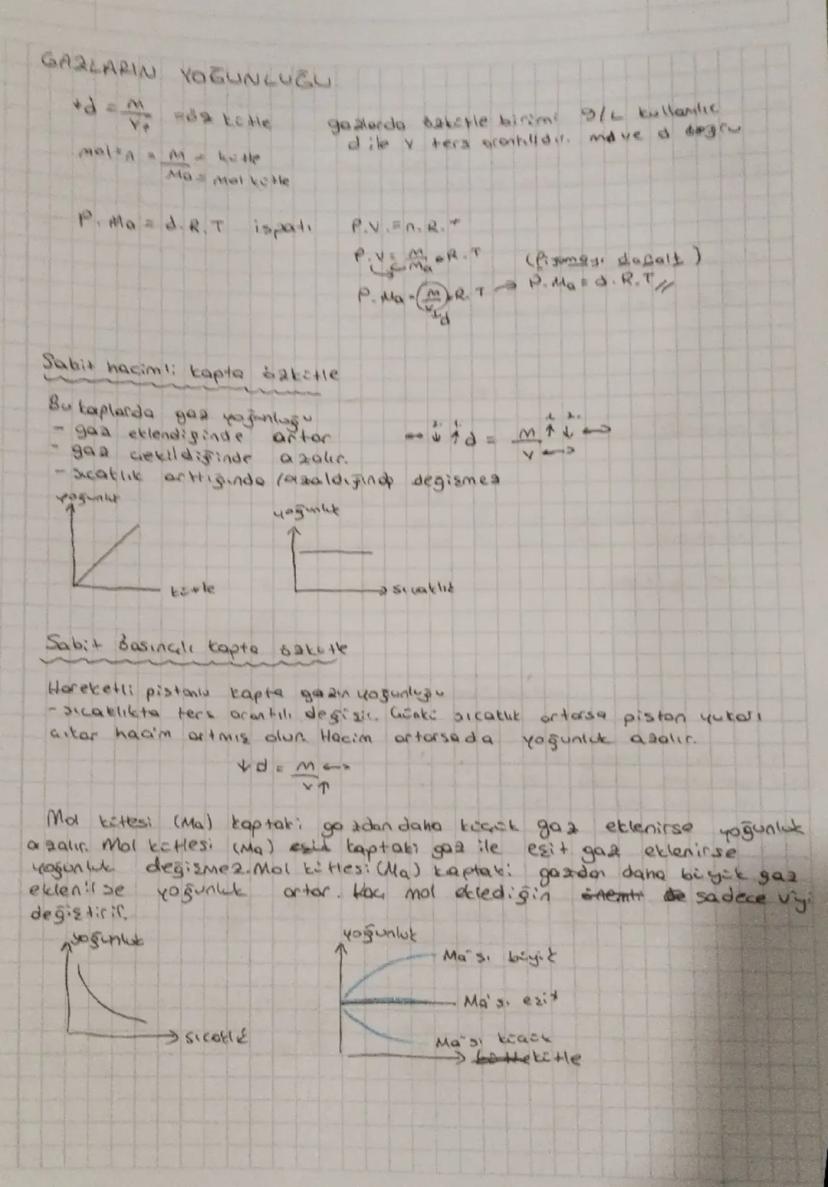 GAZLARIN YOĞUNLUĞU
d = m/V = özkütle
gazlarda özkütle birimi g/L kullanılır
d ile V ters orantılıdır. m d ve d doğru
mol = n = m/Ma = kütle / mol kütle
P.Ma = d.R.T ispatı
P.V = n.R.T
P.V = m/Ma . R.T
(Pişmeyi dağalt)
P.Ma = (m/V) . R.T → P.Ma = d.R.T //
d
Sabit hacimli kapta özkütle
Bu kaplarda gaz yoğunluğu
- gaz eklendiğinde artar
- gaz çekildiğinde azalır.
→ 2. ↓ 1. ↑ d = m/V 1. ↑ 2. ↓ ↔
- sıcaklık arttığında / azaldığında değişmez
yoğunluk
kütle
yoğunluk
sıcaklık
Sabit basınçlı kapta özkütle
Hareketli pistonlu kapta gazın yoğunluğu
- sıcaklıkta ters orantılı değişir. Çünkü sıcaklık artarsa piston yukarı
çıkar hacim artmış olur. Hacim artarsada yoğunluk azalır.
↓ d = m ↔ / V ↑
Mol kütlesi (Ma) kaptaki gazdan daha küçük gaz eklenirse yoğunluk
azalır. Mol kütlesi (Ma) kaptaki gaz ile eşit gaz eklenirse
yoğunluk değişmez. Mol kütlesi (Ma) kaptaki gazdan daha büyük gaz
eklenilse yoğunluk artar. Kaç mol eklediğin sadece V'yi
değiştirir.
yoğunluk
sıcaklık
yoğunluk
Ma'sı büyük
Ma'sı eşit
Ma'sı küçük
kütle